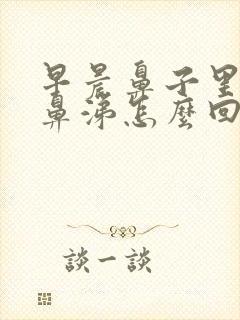 早晨鼻子里
鼻涕怎麼回
談一談